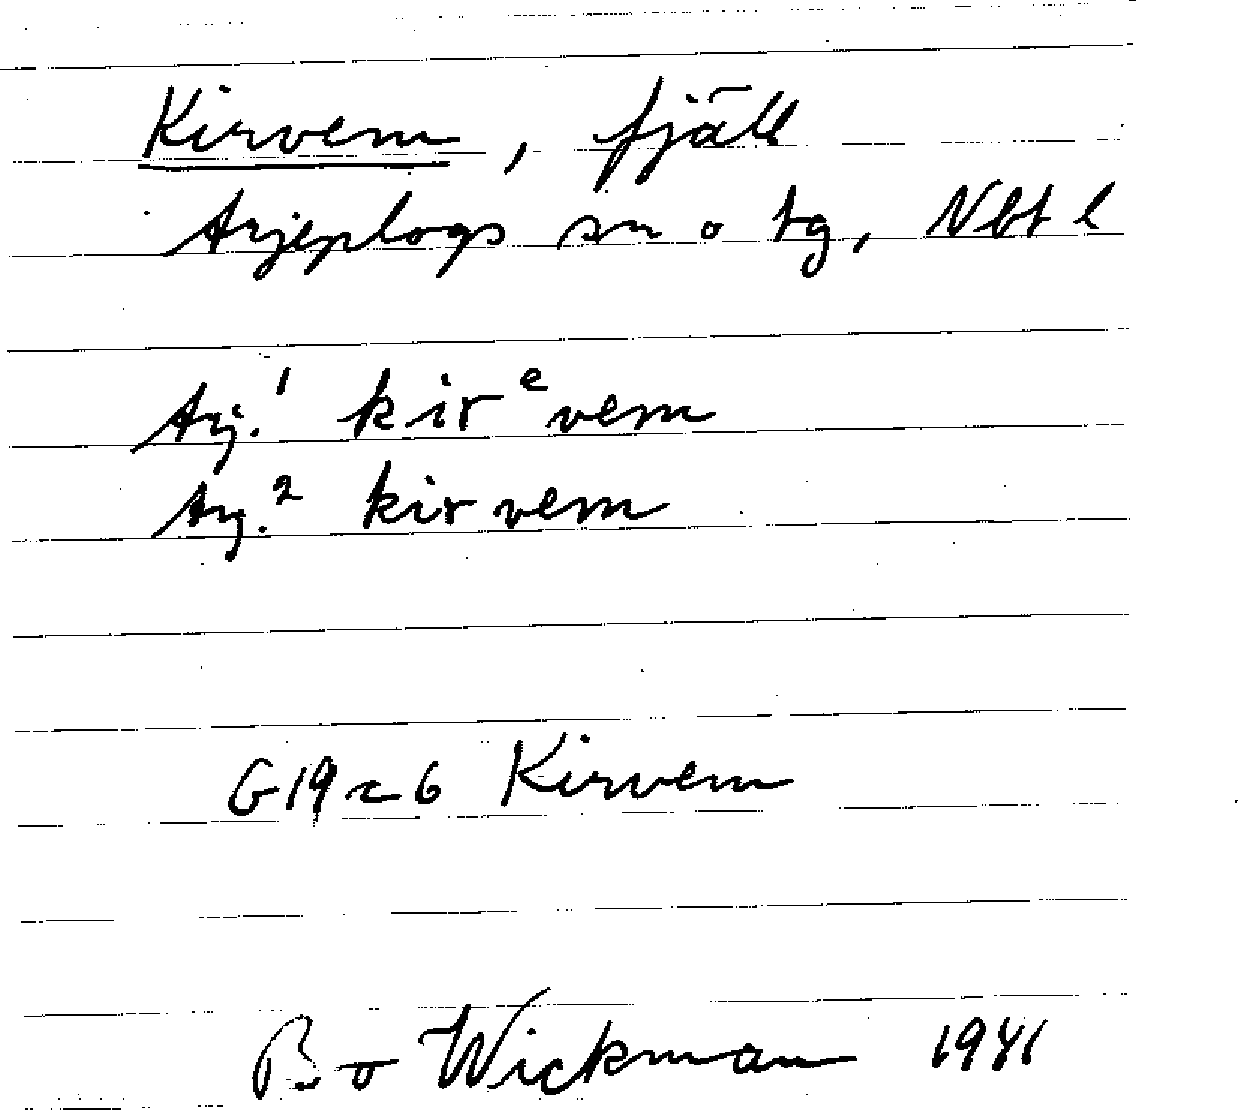 Kirvem, fjäll
Arjeplogs sn o tg, Nbt l
Arj.¹ kirᵉvem
Arj.² kirvem
G19c6 Kirvem
Bo Wickman 1941